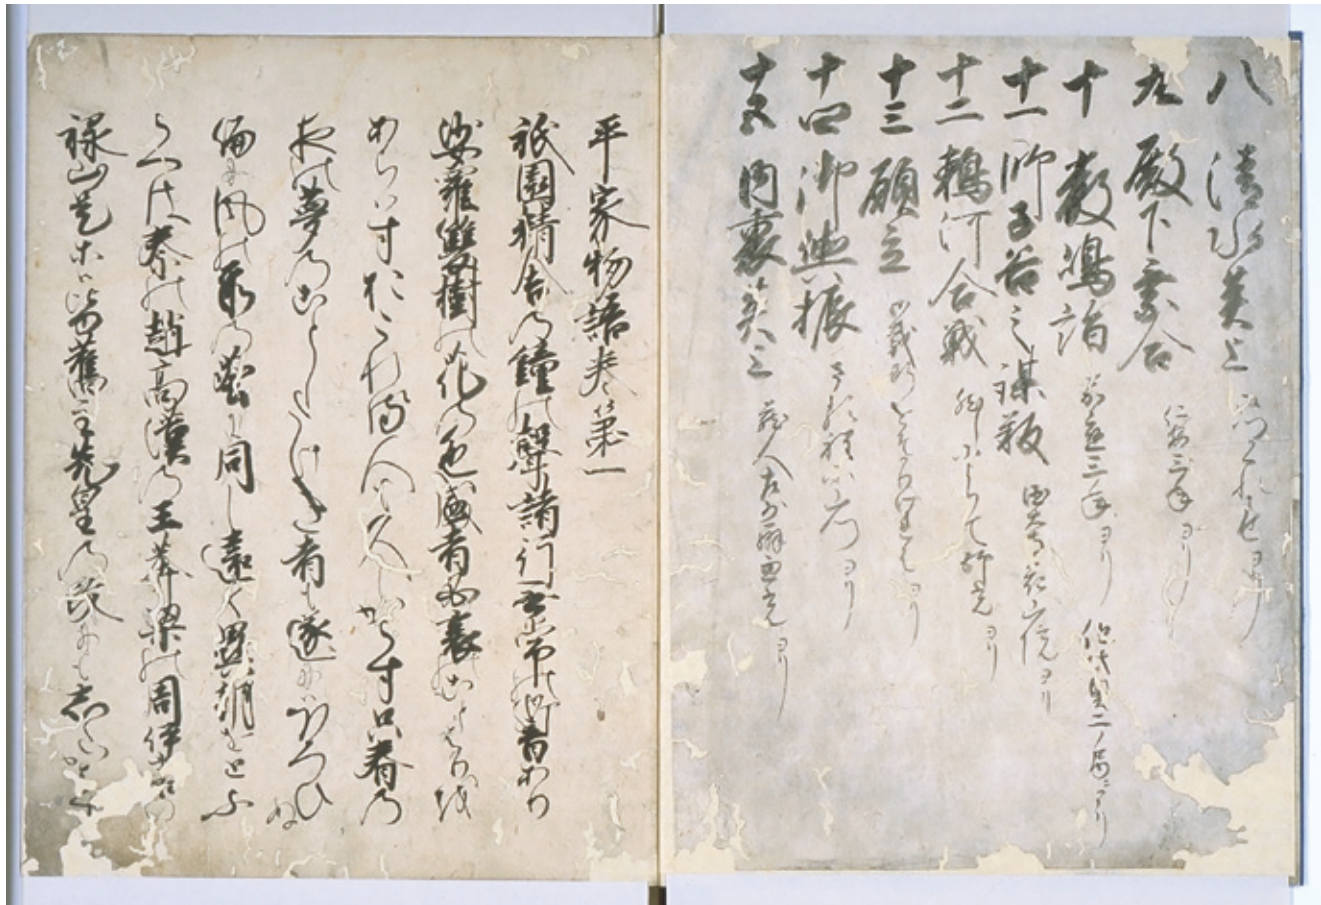 八 清水炎上
九 殿下乗合 仁安三年ヨリ
十 厳嶋詣 嘉応三年ヨリ
十一 師子谷之謀叛
十二 鵜河合戦
十三 願立
十四 御輿振
十五 内裏炎上 蔵人左少弁兼光ヨリ
平家物語巻第一
祇園精舎の鐘の声諸行無常の響あり
娑羅双樹の花の色盛者必衰のことはりを
あらはすおこれる人も久しからす只春の
夜の夢のことしたけき者も遂にはほろひぬ
偏に風の前の塵に同し遠く異朝をとふ
らへは秦の趙高漢の王莽梁の周伊唐の
禄山是等は皆旧主先皇の政にもしたかは